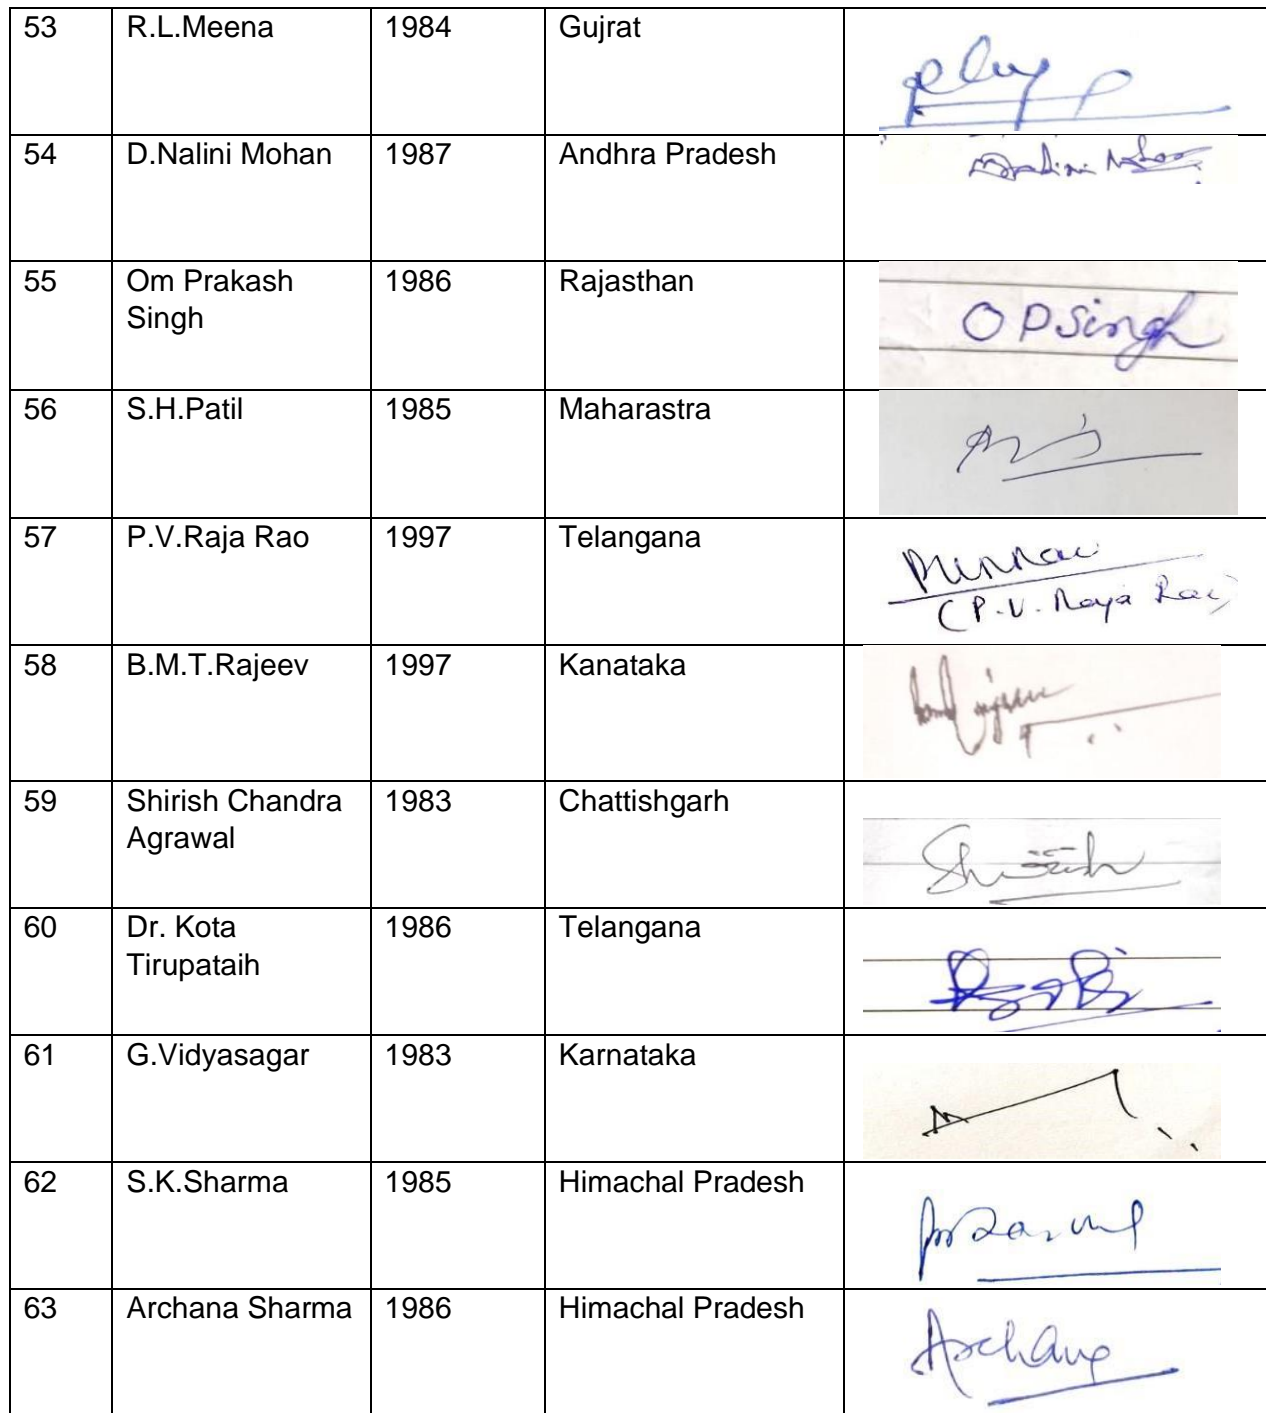 53 R.L.Meena 1984 Gujrat
54 D.Nalini Mohan 1987 Andhra Pradesh
55 Om Prakash 1986 Rajasthan
Singh
OPSingh
56 S.H.Patil 1985 Maharastra
57 P.V.Raja Rao 1997 Telangana
(P.V. Raja Rao)
58 B.M.T.Rajeev 1997 Kanataka
59 Shirish Chandra 1983 Chattishgarh
Agrawal
Shirish
60 Dr. Kota 1986 Telangana
Tirupataih
61 G.Vidyasagar 1983 Karnataka
62 S.K.Sharma 1985 Himachal Pradesh
63 Archana Sharma 1986 Himachal Pradesh
Archana